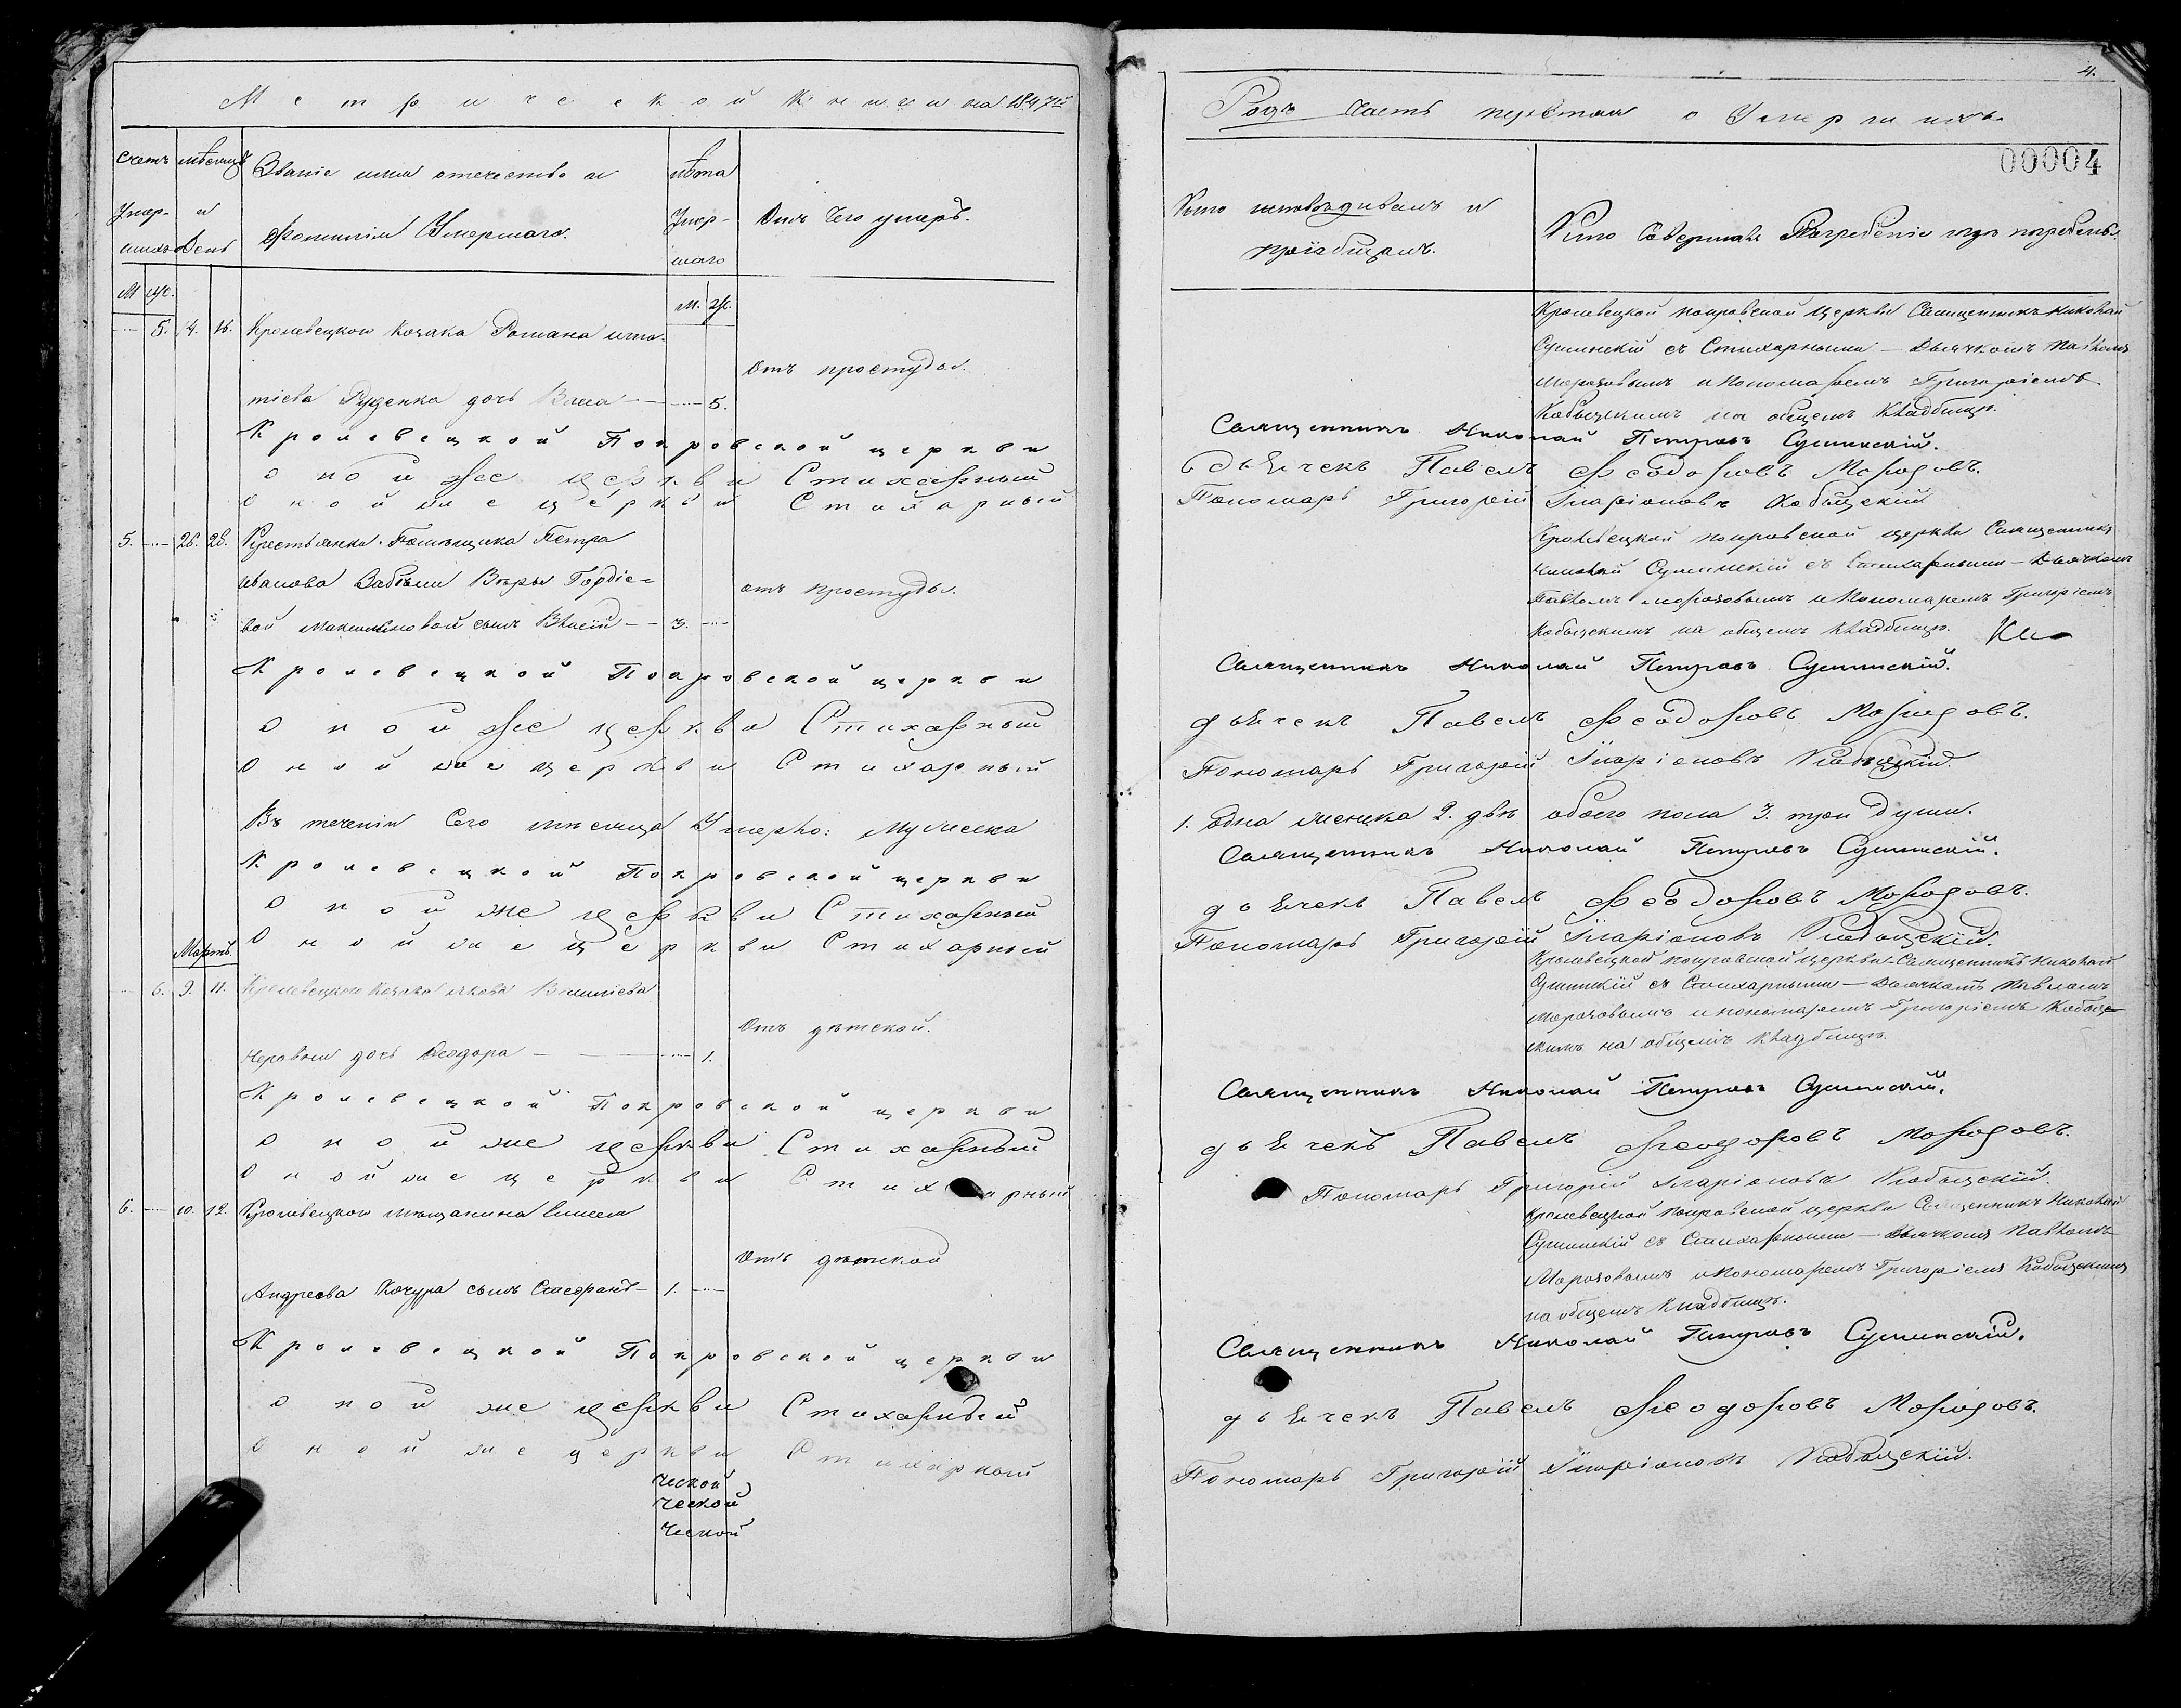 Метрической Книги на 1847й
Счетъ Умер-шихъ
мѣсяцъ и День
Званіе имя отечество и Фамилія Умершаго.
лѣта Умер-шаго
Отъ Чего умеръ.
М Ж.
М. Ж.
5. 4. 16. Кролевецкого Козака Романа
Отъ простуды.
Руденка дочь 5.
Кролевецкой Покровской церкви
оной же церкви Стихарный
Оной же церкви Стихарный
5. 26. 28. Помѣщика Петра
Иванова Забѣлы Вѣры Гордіе-
отъ простуды.
вой сынъ 3.
Кролевецкой Покровской церкви
оной же церкви Стихарный
Оной же церкви Стихарный
Въ теченіи Сего мѣсяца Умерло: Мужеска
Кролевецкой Покровской церкви
оной же церкви Стихарный
Оной же церкви Стихарный
Мартъ.
6. 9. 11. Кролевецкого Козака Якова
Отъ дѣтской.
дочь Феодора 1.
Кролевецкой Покровской церкви
оной же церкви Стихарный
Оной же церкви Стихарный
6. 10. 12. Кролевецкого мѣщанина
Отъ дѣтской
Андреева Кочура сынъ Стефанъ 1.
Кролевецкой Покровской церкви
оной же церкви Стихарный
Оной же церкви Стихарный
ческой
ческой
ческой
4.
Годъ Часть третая о Умершихъ.
00004
Кто исповѣдивалъ и пріобщалъ.
Кто Совершалъ Погребеніе и гдѣ погребенъ.
Кролевецкой покровской Церкви Священникъ Николай
Сушинскій съ Стихарными – Дьячкомъ Павломъ
Морозовымъ и Пономаремъ Григоріемъ
Кобыщкимъ на общемъ кладбищѣ.
Священникъ Николай Петровъ Сушинскій.
дьячекъ Павелъ Феодоровъ Морозовъ.
Пономарь Григорій Иларіоновъ Кобыщскій
Кролевецкой покровской церкви Священникъ
Николай Сушинскій съ Стихарными – Дьячкомъ
Павломъ Морозовымъ и Пономаремъ Григоріемъ
Кобыщскимъ на общемъ кладбищѣ.
Священникъ Николай Петровъ Сушинскій.
дьячекъ Павелъ Феодоровъ Морозовъ.
Пономарь Григорій Иларіоновъ Кобыщскій.
1. одна женска 2. двѣ обоего пола 3. три души.
Священникъ Николай Петровъ Сушинскій.
дьячекъ Павелъ Феодоровъ Морозовъ.
Пономарь Григорій Иларіоновъ Кобыщскій.
Кролевецкой покровской церкви Священникъ Николай
Сушинскій съ Стихарными – Дьячкомъ Павломъ
Морозовымъ и пономаремъ Григоріемъ Кобыщ-
скимъ на общемъ кладбищѣ.
Священникъ Николай Петровъ Сушинскій.
дьячекъ Павелъ Феодоровъ Морозовъ.
Пономарь Григорій Иларіоновъ Кобыщскій.
Кролевецкой покровской церкви Священникъ Николай
Сушинскій съ Стихарными – Дьячкомъ Павломъ
Морозовымъ и Пономаремъ Григоріемъ Кобыщскимъ
на общемъ кладбищѣ.
Священникъ Николай Петровъ Сушинскій.
дьячекъ Павелъ Феодоровъ Морозовъ.
Пономарь Григорій Иларіоновъ Кобыщскій.